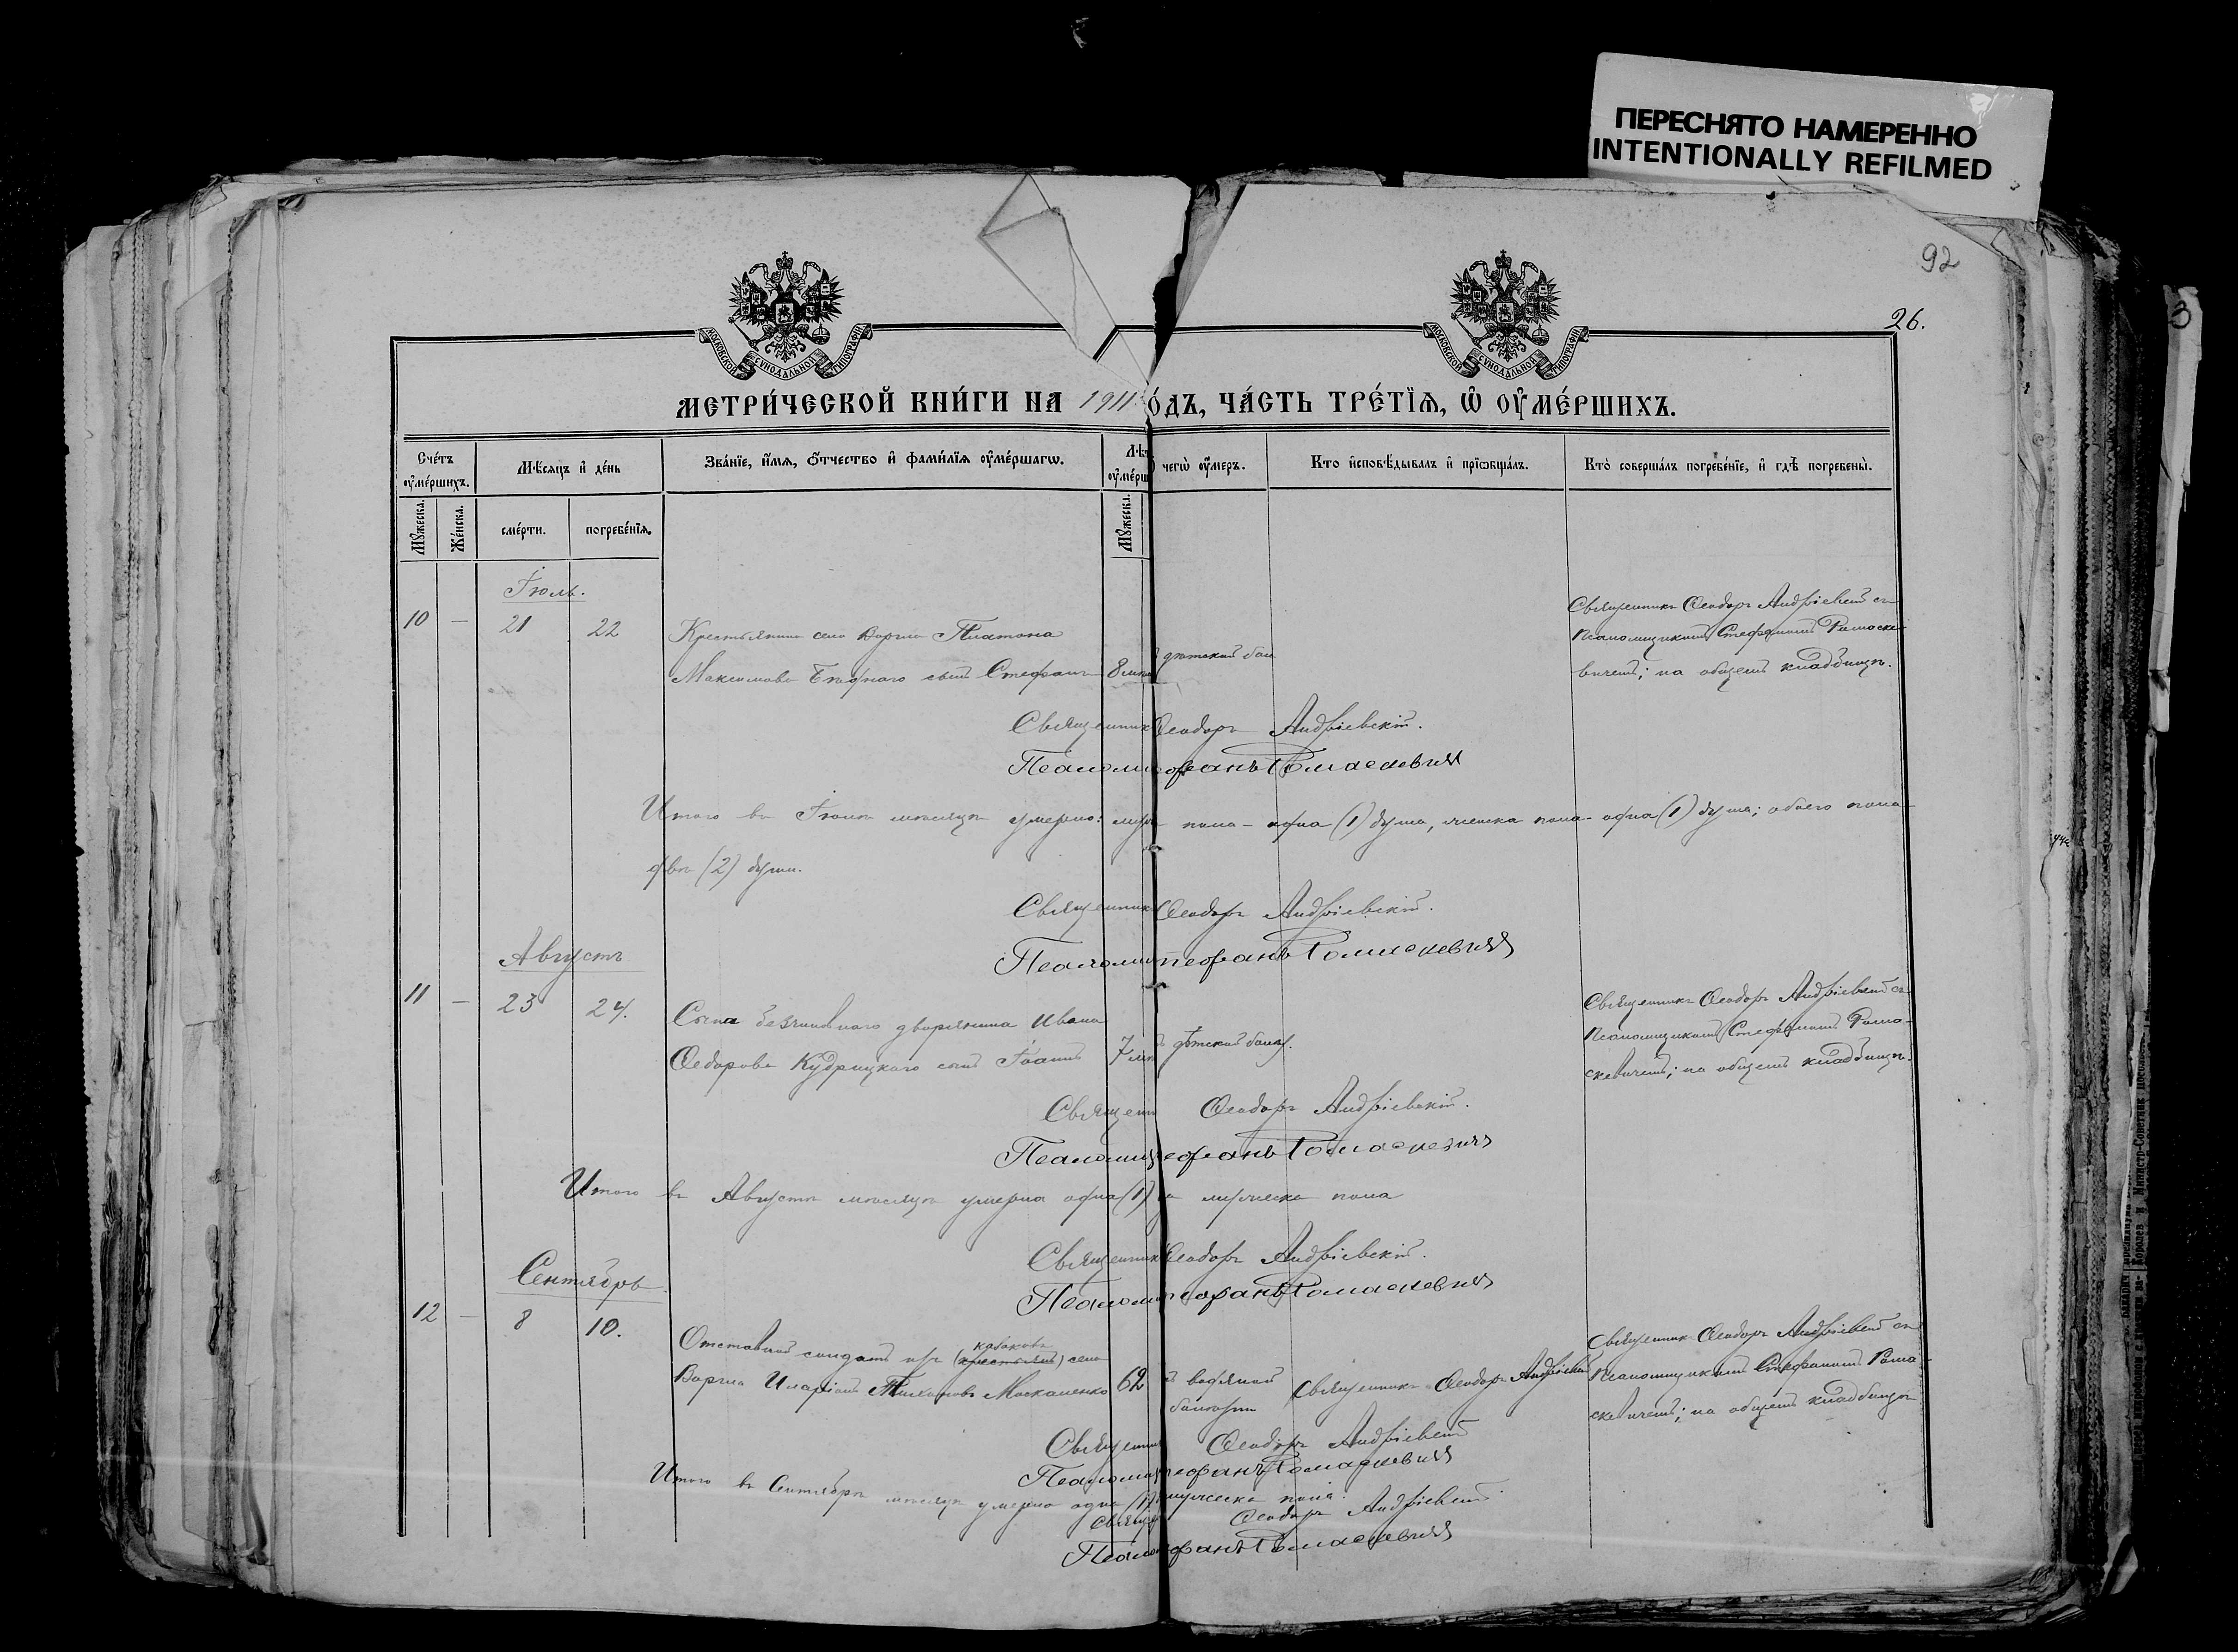 ПЕРЕСНЯТО НАМЕРЕННО
INTENTIONALLY REFILMED
92
26.
МОСКОВСКОЙ СУНОДАЛЬНОЙ ТИПОГРАФІИ
МОСКОВСКОЙ СУНОДАЛЬНОЙ ТИПОГРАФІИ
МЕТРИ́ЧЕСКОЙ КНИ́ГИ НА 1911 ÓДЪ, ЧÁСТЬ ТРÉТЇѦ, Ѡ ОУМÉРШИХЪ.
Счéтъ оумéршихъ.
Мѣсяцъ и дéнь
Звáнїе, и́мѧ, óтчество и фамúлїѧ оумéршагѡ.
Лѣт
оумéрш
чегѡ̀ оýмеръ.
Кто исповѣ́дывалъ и прїѡбщáлъ.
Ктó совершáлъ погребéнїе, и гдѣ̀ погребены̀.
Мꙋжеска.
Жéнска.
смéрти.
погребéнїѧ.
Мꙋжеска.
Іюль.
10 — 21 22
Крестьянина села Воргла Платона
Максимова Бѣднаго сынъ Стефанъ 8 мѣс
дѣтской бол
Священникъ Ѳеодоръ Андріевскій съ
Псаломщикомъ Стефаномъ Ромаске-
вичемъ; на общемъ кладбищѣ.
Священник Ѳеодоръ Андріевскій.
Псаломщ ефанъ Ромаскевичъ
Итого въ Іюлѣ мѣсяцѣ умерло: муж пола – одна (1) душа, женска пола – одна (1) душа; обоего пола
двѣ (2) души.
Священник Ѳеодоръ Андріевскій.
Псаломщ тефанъ Ромаскевичъ
Августъ
11 — 23 24.
Сына безчиновнаго дворянина Ивана
Ѳедорова Кудрицкаго сынъ Іоаннъ 7 мѣс
дѣтской болѣз.
Священникъ Ѳеодоръ Андріевскій съ
Псаломщикомъ Стефаномъ Рома-
скевичемъ; на общемъ кладбищѣ.
Священн Ѳеодоръ Андріевскій.
Псаломщ ефанъ Ромаскевичъ
Итого въ Августѣ мѣсяцѣ умерла одна (1) а мужеска пола
Священник Ѳеодоръ Андріевскій.
Псаломщ ефанъ Ромаскевичъ
Сентябрь
12 — 8 10.
казаковъ
Отставной солдатъ изъ (крестьянъ) села
Воргла Иларіонъ Москаленко 62
водяной
болѣзни
Священникъ Ѳеодоръ Андріевскій
Священникъ Ѳеодоръ Андріевскій съ
Псаломщикомъ Стефаномъ Рома-
скевичемъ; на общемъ кладбищѣ
Священни Ѳеодоръ Андріевскій
Псаломщ ефанъ Ромаскевичъ
Итого въ Сентябрѣ мѣсяцѣ умерла одна (1) мужеска пола.
Свящ Ѳеодоръ Андріевскій.
Псалом фанъ Ромаскевичъ